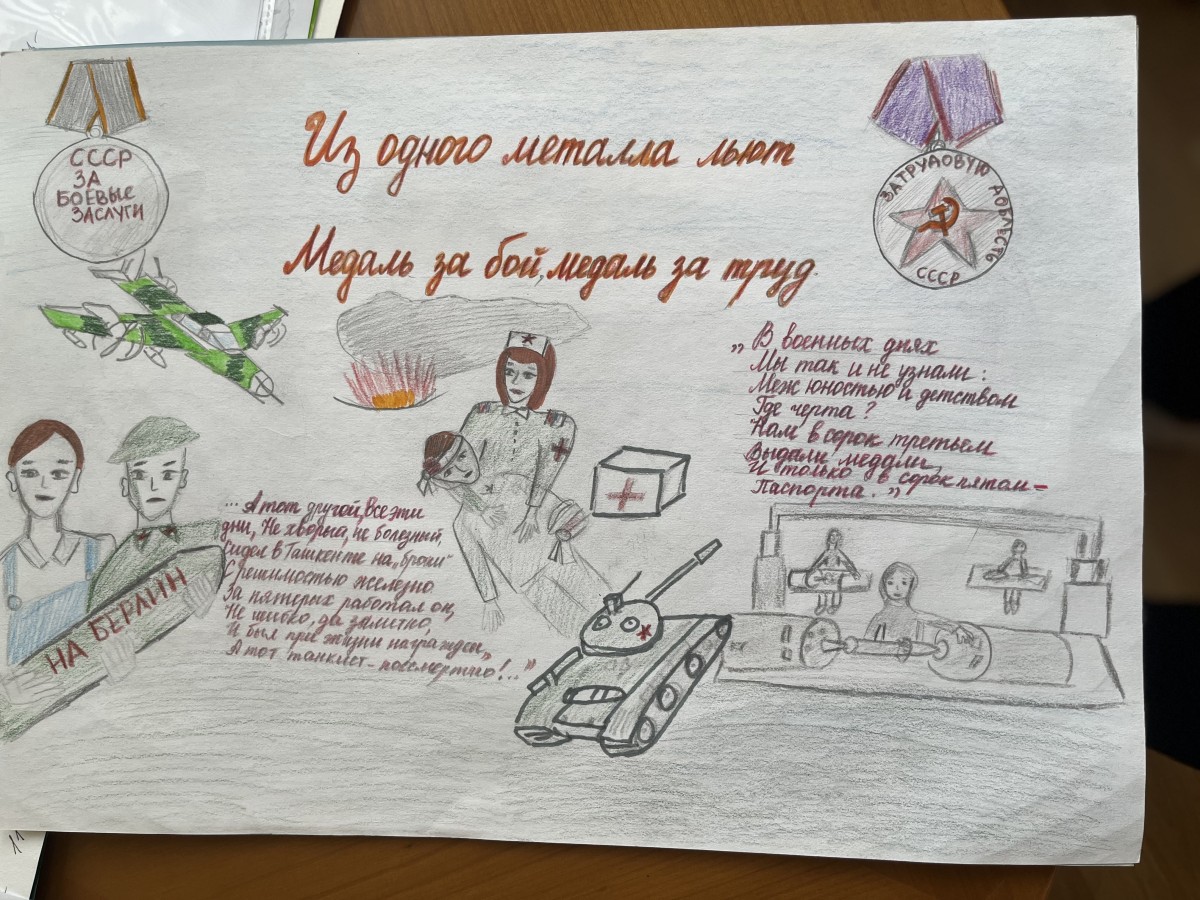 СССР
ЗА
БОЕВЫЕ
ЗАСЛУГИ
Из одного металла льют
Медаль за бой, медаль за труд.
ЗА ТРУДОВУЮ ДОБЛЕСТЬ
СССР
„В военных днях
Мы так и не узнали:
Меж юностью и детством
Где черта?
Нам в сорок третьем
Выдали медали,
И только в сорок пятом -
Паспорта.”
... А тот другой, все эти
дни, Не хворый, не болезный,
Сидел в Ташкенте на „брони"
С решимостью железно
За пятерых работал он,
Не шибко, да
И был при жизни награжден,
А тот танкист - посмертно!.. ”
НА БЕРЛИН
11